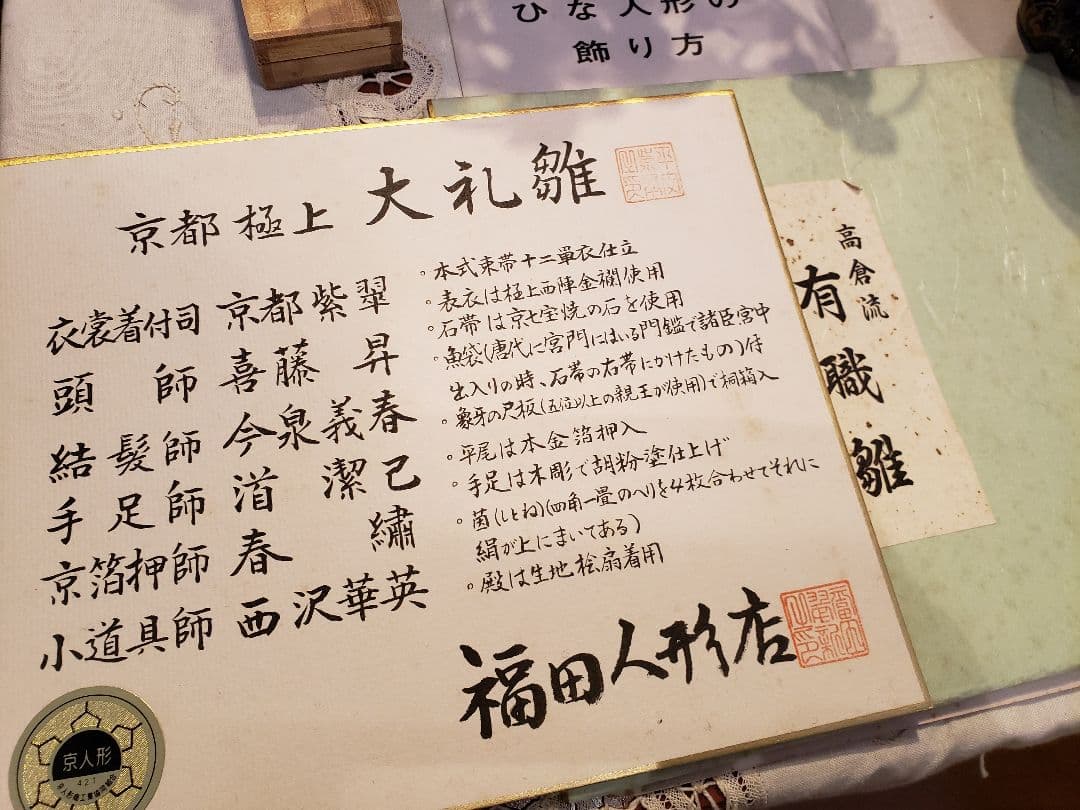 ひな人形の
飾り方
京都 極上 大礼雛
衣裳着付司 京都紫翠
頭師 喜藤 昇
結髪師 今泉義春
手足師 潔己
京箔押師 春繡
小道具師 西沢華英
。本式束帯十二單衣仕立
。表衣は極上西陣金襴使用
。石帯は京七宝焼の石を使用
。魚袋(唐代に宮門にはいる門鑑で諸臣宮中
出入りの時、石帯の右帯にかけたもの)付
。象牙の尺板(五位以上の親王が使用)で桐箱入
。平尾は本金箔押入
。手足は木彫で胡粉塗仕上げ
。茵(しとね)(四角一畳のヘリを4枚合わせてそれに
絹が上にまいてある)
。殿は生地桧扇着用
福田人形店
高倉流
有職雛
京人形
421